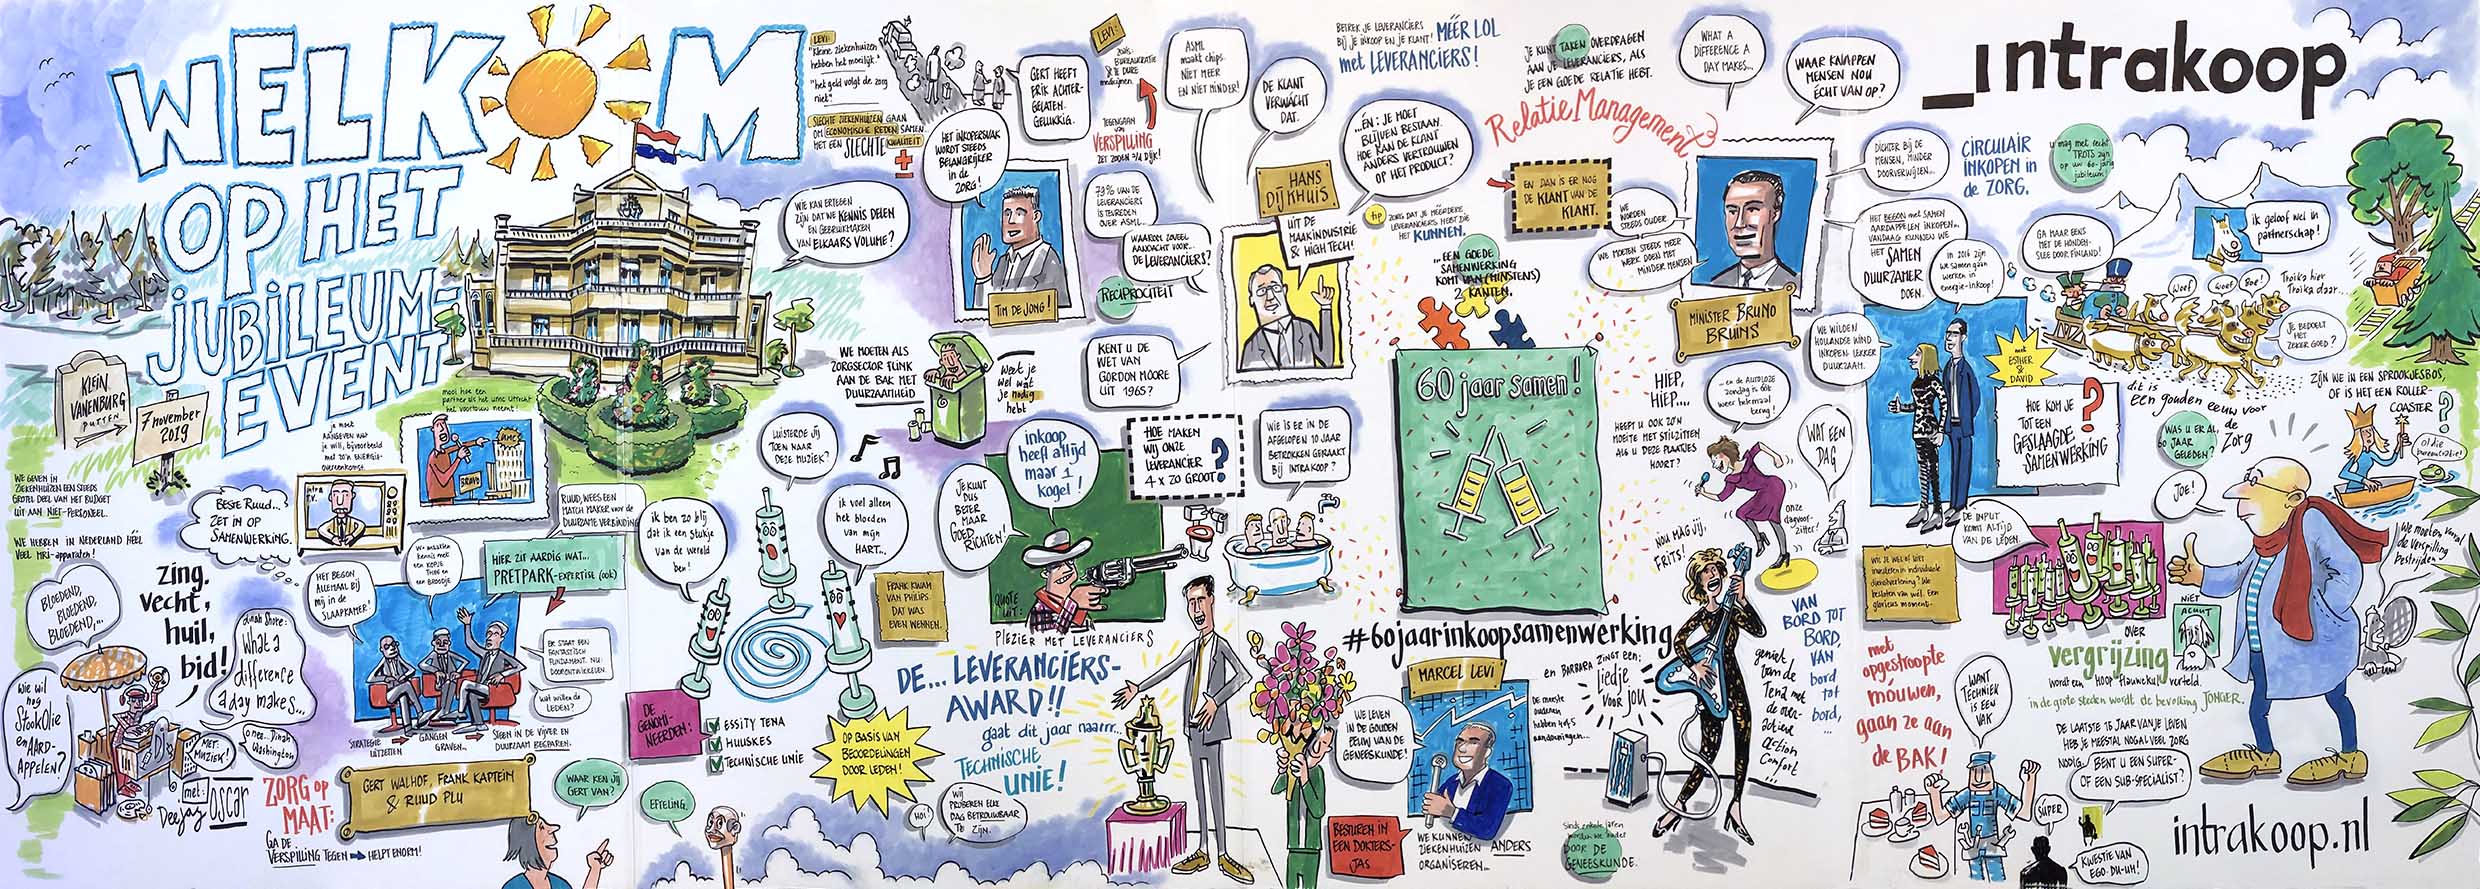 WELKOM
OP HET
JUBILEUM-
EVENT
KLEIN
VANENBURG
PUTTEN
7 november
2019
mooi hoe een
partner als het UMC Utrecht
het voortouw neemt!
je moet
AANGEVEN wat
je wilt, bijvoorbeeld
met zo'n ENERGIE-
overeenkomst
WE GEVEN IN
ZIEKENHUIZEN EEN STEEDS
GROTER DEEL VAN HET BUDGET
UIT AAN NIET-PERSONEEL.
WE HEBBEN IN NEDERLAND HÉÉL
VEEL MRI-apparaten!
BESTE RUUD...
ZET IN OP
SAMENWERKING.
BRAVO
UMC
BLOEDEND,
BLOEDEND,
BLOEDEND,...
zing,
vecht,
huil,
bid!
Dinah Shore:
What a
difference
a day makes...
o nee... Dinah
Washington
Wie wil
nog
StookOlie
en AARD-
APPELEN?
MET:
MUZIEK!
Deejay
met:
Oscar
ZORG op
MAAT:
GA DE
VERSPILLING TEGEN HELPT ENORM!
HET BEGON
ALLEMAAL BIJ
MIJ in de
SLAAPKAMER!
We maakten
kennis met
een KOPJE
THEE en
een BROODJE
RUUD, WEES EEN
MATCH MAKER voor de
DUURZAME VERBINDING
HIER ZIT AARDIG WAT...
PRETPARK-EXPERTISE (ook)
ER STAAT EEN
FANTASTISCH
FUNDAMENT. NU:
DOORONTWIKKELEN.
wat willen de
LEDEN?
STRATEGIE
UITZETTEN
GANGEN
GRAVEN...
STEEN IN DE VIJVER EN
DUURZAAM BEGRAVEN.
GERT WALHOF, FRANK KAPTEIN
& RUUD PLU
WAAR KEN JIJ
GERT VAN?
EFTELING.
LEVI:
"Kleine ziekenhuizen
hebben het moeilijk."
"het geld volgt de zorg
niet"
SLECHTE ZIEKENHUIZEN GAAN
OM ECONOMISCHE REDEN SAMEN...
MET EEN SLECHTE KWALITEIT
±
GERT HEEFT
ERIK ACHTER-
GELATEN.
GELUKKIG.
HET INKOPERSVAK
WORDT STEEDS
BELANGRIJKER
in de
ZORG!
WIE KAN ERTEGEN
ZIJN DAT WE KENNIS DELEN
EN GEBRUIKMAKEN
VAN ELKAARS VOLUME?
TIM DE JONG!
LEVI:
zoals:
BUREAUKRATIE
& TE DURE
medicijnen.
TEGENGAAN
van
VERSPILLING
ZET ZODEN A/D DIJK!
79% VAN DE
LEVERANCIERS
IS TEVREDEN
OVER ASML...
WAAROM ZOVEEL
AANDACHT VOOR...
DE LEVERANCIERS?
RECIPROCITEIT
ASML
maakt chips.
NIET MEER
EN NIET MINDER!
DE KLANT
VERWACHT
DAT.
HANS
DIJKHUIS
UIT DE
MAAKINDUSTRIE
& HIGH TECH!
KENT U DE
WET VAN
GORDON MOORE
UIT 1965?
WE MOETEN ALS
ZORGSECTOR FLINK
AAN DE BAK MET
DUURZAAMHEID
Weet je
wel wat
je nodig
hebt
LUISTERDE JIJ
TOEN NAAR
DEZE MUZIEK?
ik ben zo blij
dat ik een stukje
van de wereld
ben!
ik voel alleen
het bloeden
van mijn
HART...
FRANK KWAM
VAN PHILIPS.
DAT WAS
EVEN WENNEN.
JE KUNT
DUS
BETER
MAAR
GOED
RICHTEN!
inkoop
heeft altijd
maar 1
kogel!
QUOTE
UIT:
PLEZIER MET LEVERANCIERS
HOE MAKEN
WIJ ONZE
LEVERANCIER
4 x ZO GROOT?
WIE IS ER IN DE
AFGELOPEN 10 JAAR
BETROKKEN GERAAKT
BIJ INTRAKOOP?
DE GENOMI-
NEERDEN:
ESSITY TENA
HUUSKES
TECHNISCHE UNIE
OP BASIS VAN
BEOORDELINGEN
DOOR LEDEN!
DE... LEVERANCIERS-
AWARD!!
gaat dit jaar naarrr...
TECHNISCHE
UNIE!
HOI!
WIJ
PROBEREN ELKE
DAG BETROUWBAAR
TE ZIJN.
1
BETREK JE LEVERANCIERS
BIJ JE INKOOP EN JE KLANT! MÉÉR LOL
met LEVERANCIERS!
...ÉN: JE MOET
BLIJVEN BESTAAN.
HOE KAN DE KLANT
ANDERS VERTROUWEN
OP HET PRODUCT?
tip
ZORG DAT JE MEERDERE
LEVERANCIERS HEBT DIE
HET KUNNEN.
JE KUNT TAKEN OVERDRAGEN
AAN JE LEVERANCIERS, ALS
JE EEN GOEDE RELATIE HEBT.
RelatieManagement
EN DAN IS ER NOG
DE KLANT VAN DE
KLANT.
...EEN GOEDE
SAMENWERKING
KOMT VAN (MINSTENS)
2 KANTEN.
60 jaar samen!
#60jaarinkoopsamenwerking
WHAT A
DIFFERENCE A
DAY MAKES...
WAAR KNAPPEN
MENSEN NOU
ÉCHT VAN OP?
WE
WORDEN
STEEDS OUDER
WE MOETEN STEEDS MEER
WERK DOEN MET
MINDER MENSEN
MINISTER BRUNO
BRUINS
DICHTER BIJ DE
MENSEN, MINDER
DOORVERWIJZEN...
HIEP,
HIEP,...
...en de AUTOLOZE
zondag is óók
weer helemaal
terug!
HEEFT U OOK ZO'N
MOEITE MET STILZITTEN
ALS U DEZE PLAATJES
HOORT?
WAT EEN
DAG
onze
dagvoor-
zitter!
NOU MAG JIJ,
FRITS!
MARCEL LEVI
WE LEVEN
IN DE GOUDEN
EEUW VAN DE
GENEESKUNDE!
BESTUREN IN
EEN DOKTERS-
JAS
WE KUNNEN
ZIEKENHUIZEN ANDERS
ORGANISEREN...
De meeste
ouderen
hebben 4 of 5
aandoeningen...
en BARBARA ZINGT EEN:
liedje
voor jou
Sinds enkele jaren
worden we ouder
DOOR DE
GENEESKUNDE.
VAN
BORD TOT
BORD,
VAN
bord
tot
bord,
...
geniet
van de
Tena met
de over-
active
action
Comfort
...
_intrakoop
CIRCULAIR
INKOPEN in
de ZORG.
U mag met recht
TROTS zijn
op uw 60-jarig
jubileum!
HET BEGON met SAMEN
AARDAPPELEN INKOPEN...
VANDAAG KUNNEN WE
HET SAMEN
DUURZAMER
DOEN.
in 2016 zijn
we samen gaan
werken in
energie-inkoop!
WE WILDEN
HOLLANDSE WIND
INKOPEN. LEKKER
DUURZAAM.
met
ESTHER
& DAVID
HOE KOM JE
TOT EEN
GESLAAGDE
SAMENWERKING
?
GA MAAR EENS
MET DE HONDEN-
SLEE DOOR FINLAND!
ik geloof wel in
partnerschap!
Woef
Woef
Boe!
Troika hier
Troika daar...
JE BEDOELT
HET
ZEKER GOED?
dit is
een gouden eeuw voor
de
Zorg
ZIJN WE IN EEN SPROOKJESBOS,
OF IS HET EEN ROLLER-
COASTER?
WAS U ER AL,
60 JAAR
GELEDEN?
JOE!
O! die
bureaucratie!
We moeten vooral
de Verspilling
bestrijden!
DE INPUT
KOMT ALTIJD
VAN DE LEDEN.
WIL JE WEL OF NIET
investeren in individuele
dienstverlening? We
besloten van wél. Een
glorieus moment.
NIET
ACUUT
OVER
vergrijzing
wordt een HOOP flauwekul verteld.
in de grote steden wordt de bevolking JONGER.
DE LAATSTE 15 JAAR VAN JE LEVEN
HEB JE MEESTAL NOGAL VEEL ZORG
NODIG.
BENT U EEN SUPER-
OF EEN SUB-SPECIALIST?
SUPER
KWESTIE VAN
EGO. DU-UH!
met
opgestroopte
móuwen,
gaan ze aan
de BAK!
WANT
TECHNIEK
IS EEN
VAK
intrakoop.nl